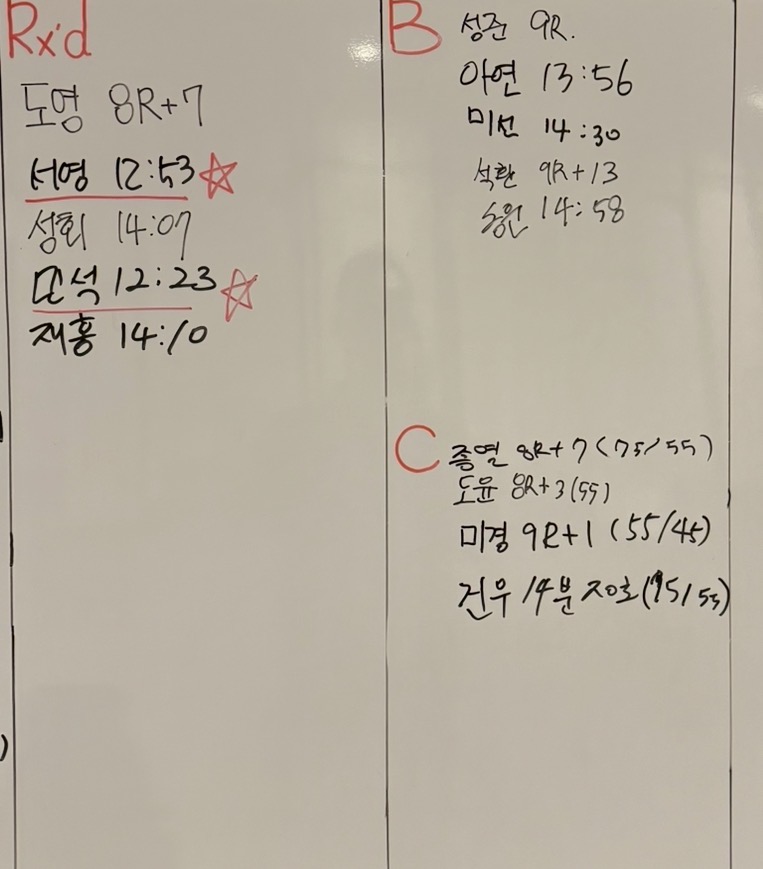 Rx'd
도영 8R+7
서영 12:53
성희 14:07
민석 12:23
재홍 14:10
B
성준 9R.
아연 13:56
미선 14:30
석환 9R+13
승원 14:58
C
종열 8R+7 (75/55)
도윤 8R+3 (55)
미경 9R+1 (55/45)
건우 14분 20초 (75/55)
)